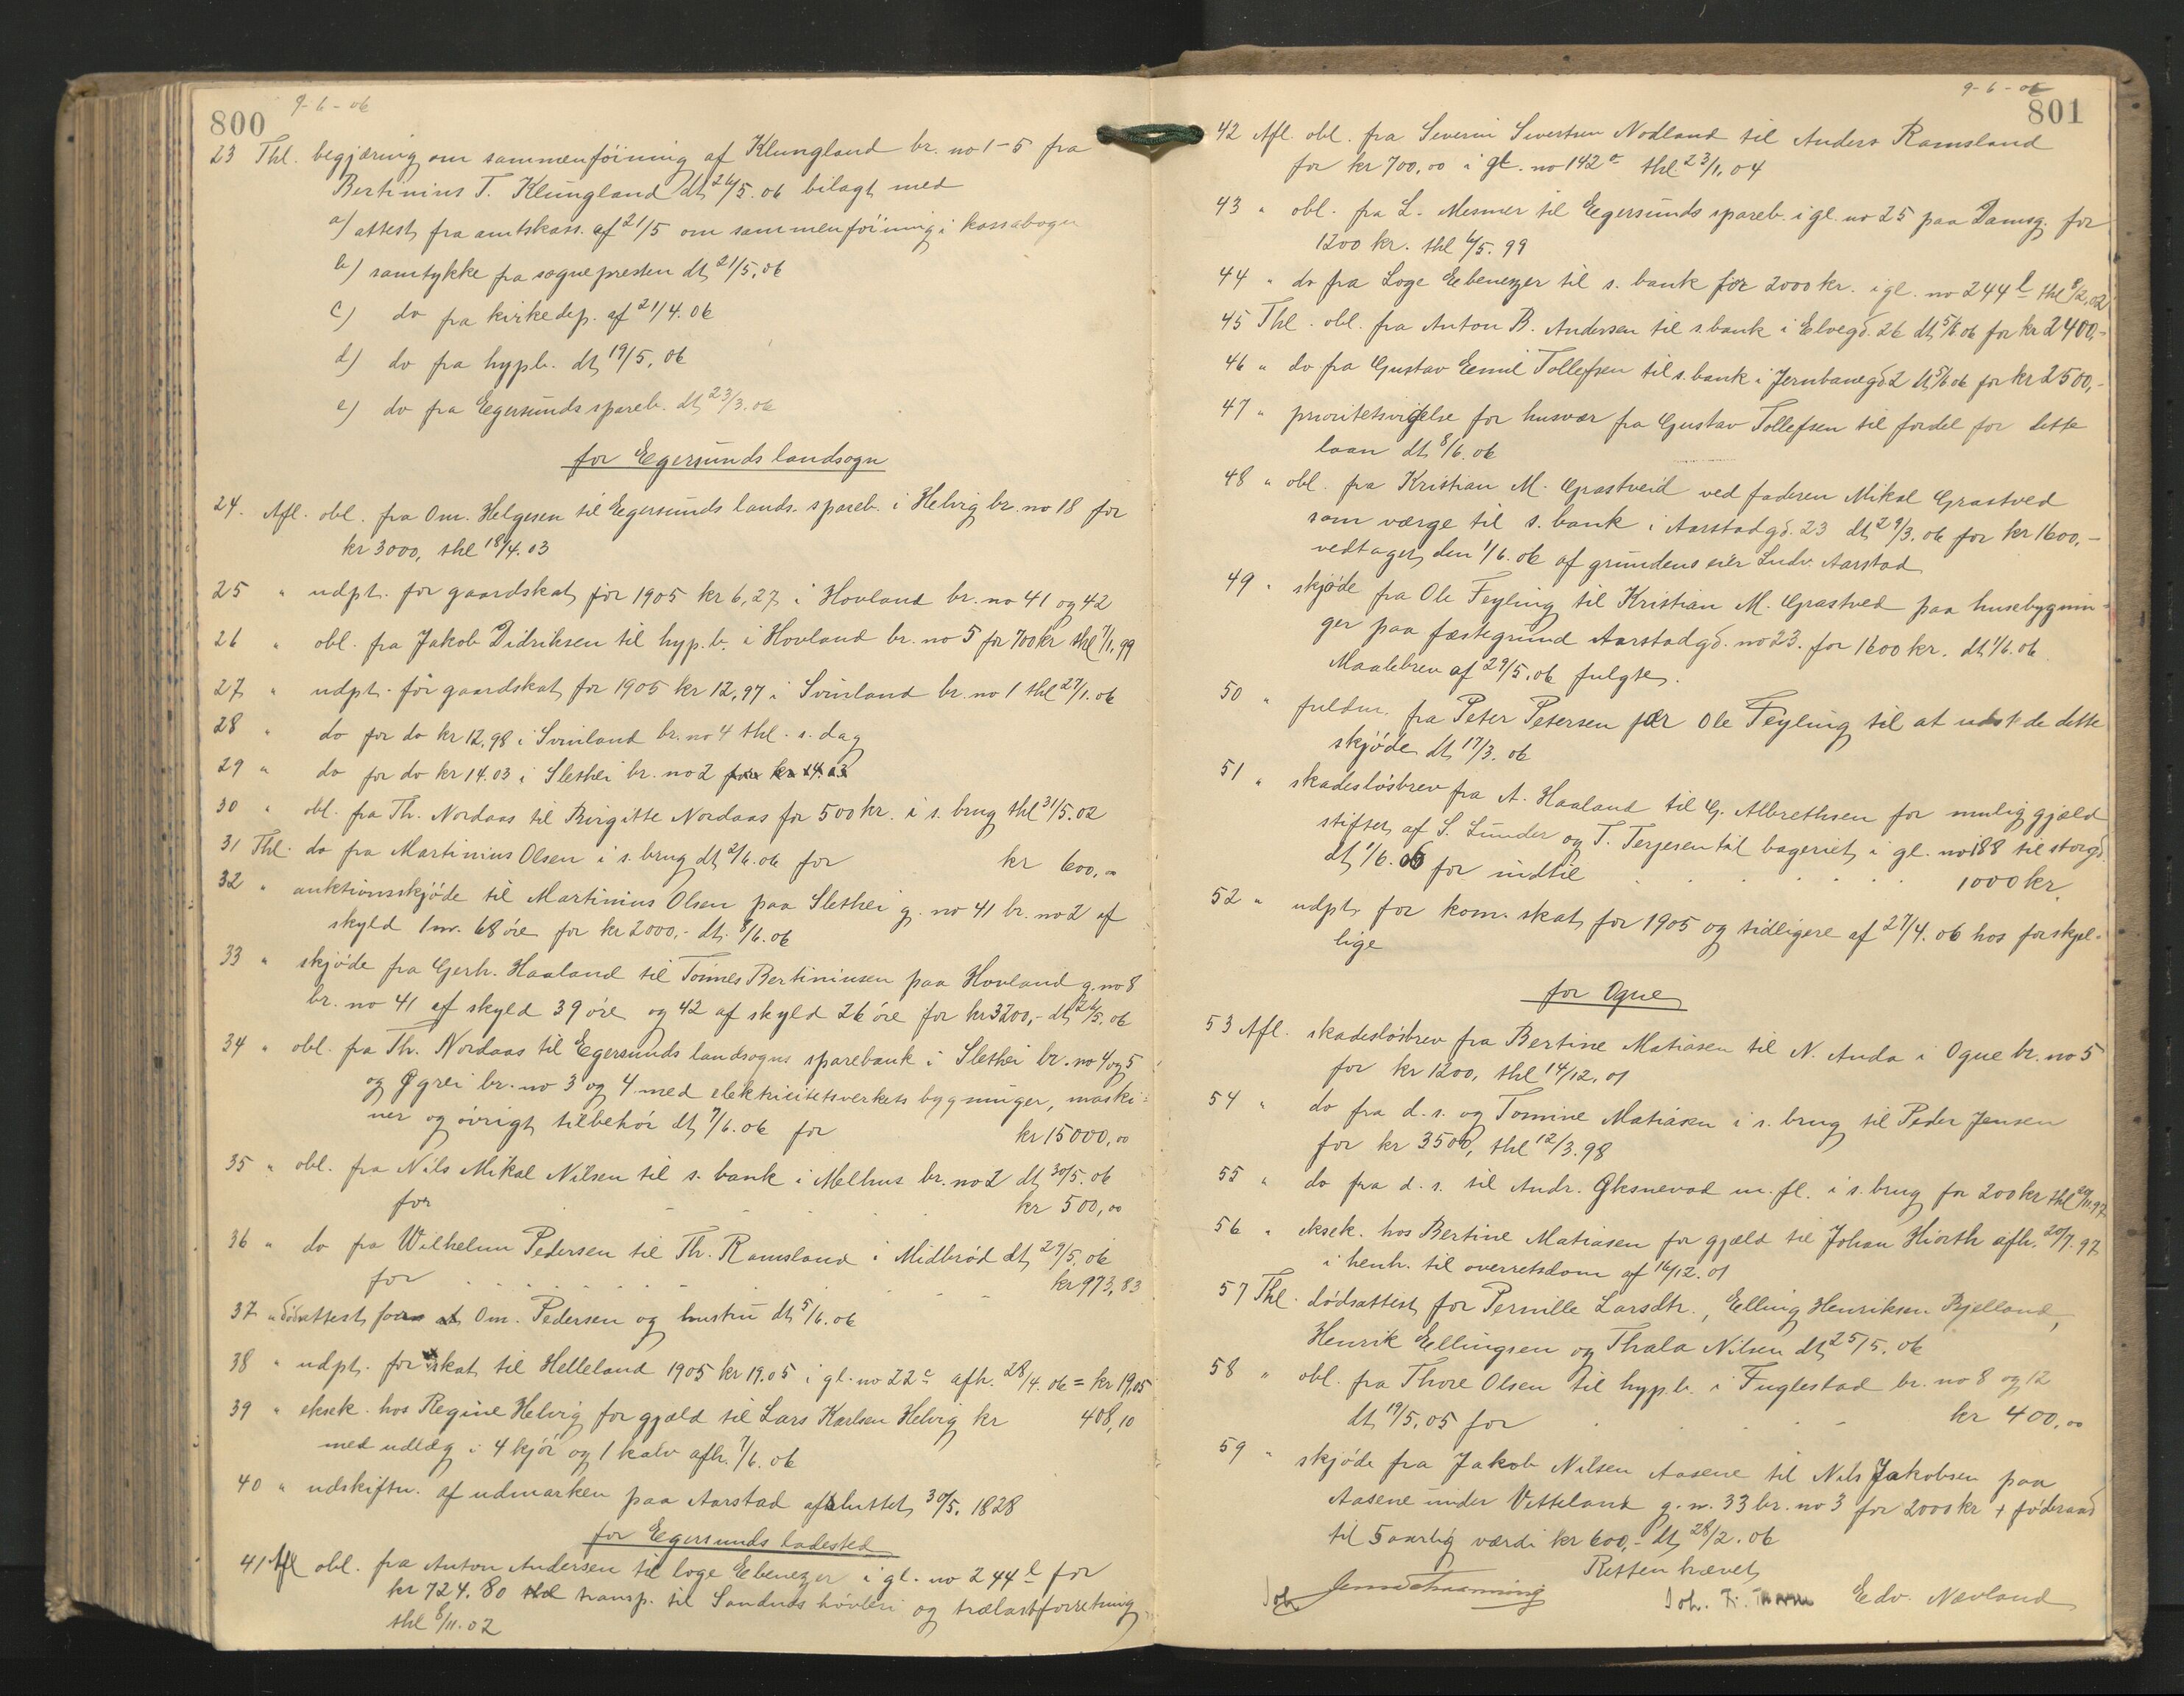 800
9-6-06
23 Thl. begjæring om sammenföining af Klungland br. no 1-5 fra
Bertinius T. Klungland dt 26/5. 06 bilagt med
a) attest fra amtskass. af 21/5 om sammenföining i kassabogen
b) samtykke fra sognepresten dt 21/5. 06
c) do fra kirkedep. af 21/4. 06
d) do fra hypb. dt 19/5. 06
e) do fra Egersunds spareb. dt 23/3. 06
for Egersunds landsogn
24. Afl. obl. fra Om. Helgesen til Egersunds lands. spareb. i Helvig br. no 18 for
kr 3000, thl 18/4. 03
25 " udpt. for gaardskat for 1905 kr 6,27 i Hovland br. no 41 og 42
26 " obl. fra Jakob Didriksen til hyp.b. i Hovland br. no 5 for 700 kr thl 7/1. 99
27 " udpt. for gaardskat for 1905 kr 12,97 i Svinland br. no 1 thl 27/1. 06
28 " do for do kr 12,98 i Svinland br. no 4 thl. s. dag
29 " do for do kr 14.03 i Slethei br. no 2 for kr 14.03
30 " obl. fra Th. Nordaas til Birgitte Nordaas for 500 kr. i s. brug thl 31/5. 02
31 Thl. do fra Martinius Olsen i s. brug dt 2/6. 06 for kr 600,-
32 " auktionsskjöde til Martinius Olsen paa Slethei g. no 41 br. no 2 af
skyld 1 m. 68 öre for kr 2000,- dt 8/6. 06
33 " skjöde fra Gerh. Haaland til Tönnes Bertiniusen paa Hovland g. no 8
br. no 41 af skyld 39 öre og 42 af skyld 26 öre for kr 3200,- dt 26/5. 06
34 " obl. fra Th. Nordaas til Egersunds landsogns sparebank i Slethei br. no 4 og 5
og Ögrei br. no 3 og 4 med elektricitetsverkets bygninger, maski-
ner og övrigt tilbehör dt 7/6. 06 for kr 15000,00
35 " obl. fra Nils Mikal Nilsen til s. bank i Melhus br. no 2 dt 30/5. 06
for kr 500,00
36 " do fra Wilhelm Pedersen til Th. Ramsland i Midbröd dt 29/5. 06
for kr 973,83
37 " dödsattest for Om. Pedersen og hustru dt 5/6. 06
38 " udpt. for skat til Helleland 1905 kr 19.05 i gl. no 22c afh. 28/4. 06 = kr 19,05
39 " eksek. hos Regine Helvig for gjæld til Lars Karlsen Helvig kr 408,10
med udlæg i 4 kjör og 1 kalv afh. 7/6. 06
40 " udskiftn. af udmarken paa Aarstad afsluttet 30/5. 1828
for Egersunds ladested
41 Afl obl. fra Anton Andersen til loge Ebenezer i gl. no 244 l for
kr 724.80 thl transp. til Sandnds hövleri og trælastforretning
thl 8/11. 02
9-6-06
801
42 Afl. obl. fra Severin Sivertsen Nodland til Anders Ramsland
for kr 700,00 i gl. no 142 a thl 23/1. 04
43 " obl. fra L. Mesmer til Egersunds spareb. i gl. no 25 paa Damsg. for
1200 kr. thl 6/5. 99
44 " do fra Loge Ebenezer til s. bank for 2000 kr. i gl. no 244 l thl 8/2. 02
45 Thl. obl. fra Anton B. Andersen til s. bank i Elvegd. 26 dt 5/6 06 for kr 2400,-
46 " do fra Gustav Emil Tollefsen til s. bank i Jernbanegd 2 dt 5/6 06 for kr 2500,-
47 " prioritetsvigelse for husvær fra Gustav Tollefsen til fordel for dette
laan dt 8/6. 06
48 " obl. fra Kristian M. Grastveid ved faderen Mikal Grastved
som værge til s. bank i Aarstadgd. 23 dt 29/3. 06 for kr 1600,-
vedtaget den 1/6. 06 af grundens eier Ludv. Aarstad
49 " skjøde fra Ole Feyling til Kristian M. Grastved paa husebygnin-
ger paa fæstegrund Aarstadgd. no 23. for 1600 kr. dt 1/6. 06
Maalebrev af 29/5. 06 fulgte.
50 " fuldm. fra Peter Petersen for Ole Feyling til at udst de dette
skjöde dt 17/3. 06
51 " skadeslösbrev fra A. Haaland til G. Albrethsen for mulig gjæld
stiftet af S. Sunder og T. Terjesen til bageriet i gl. no 188 til storgd.
dt 1/6. 06 for indtil 1000 kr.
52 " udpt for kom. skat for 1905 og tidligere af 27/4. 06 hos forskjel-
lige
for Ogne
53 Afl. skadeslösbrev fra Bertine Matiasen til N. Anda i Ogne br. no 5
for kr 1200, thl 14/12. 01
54 " do fra d. s. og Tomine Matiasen i s. brug til Peder Jensen
for kr 3500, thl 12/3. 98
55 " do fra d. s. til Andr. Öksnevad m. fl. i s. brug for 200 kr thl 97
56 " eksek. hos Bertine Matiasen for gjæld til Johan Hiorth afh. 20/7. 97
i henh. til overretsdom af 16/12. 01
57 Thl. dødsattest for Pernille Larsdtr., Elling Henriksen Bjelland,
Henrik Ellingsen og Thala Nilsen dt 25/5. 06
58 " obl. fra Thore Olsen til hyp.b. i Fuglestad br. no 8 og 12
dt 19/5. 05 for kr 400,00
59 " skjöde fra Jakob Nilsen Aasene til Nils Jakobsen paa
Aasene under Vetteland g. n. 33 br. no 3 for 2000 kr + föderaad
til 5 aarlig værdi kr 600,- dt 28/2. 06
Retten hævet
Joh. Edv. Nævland